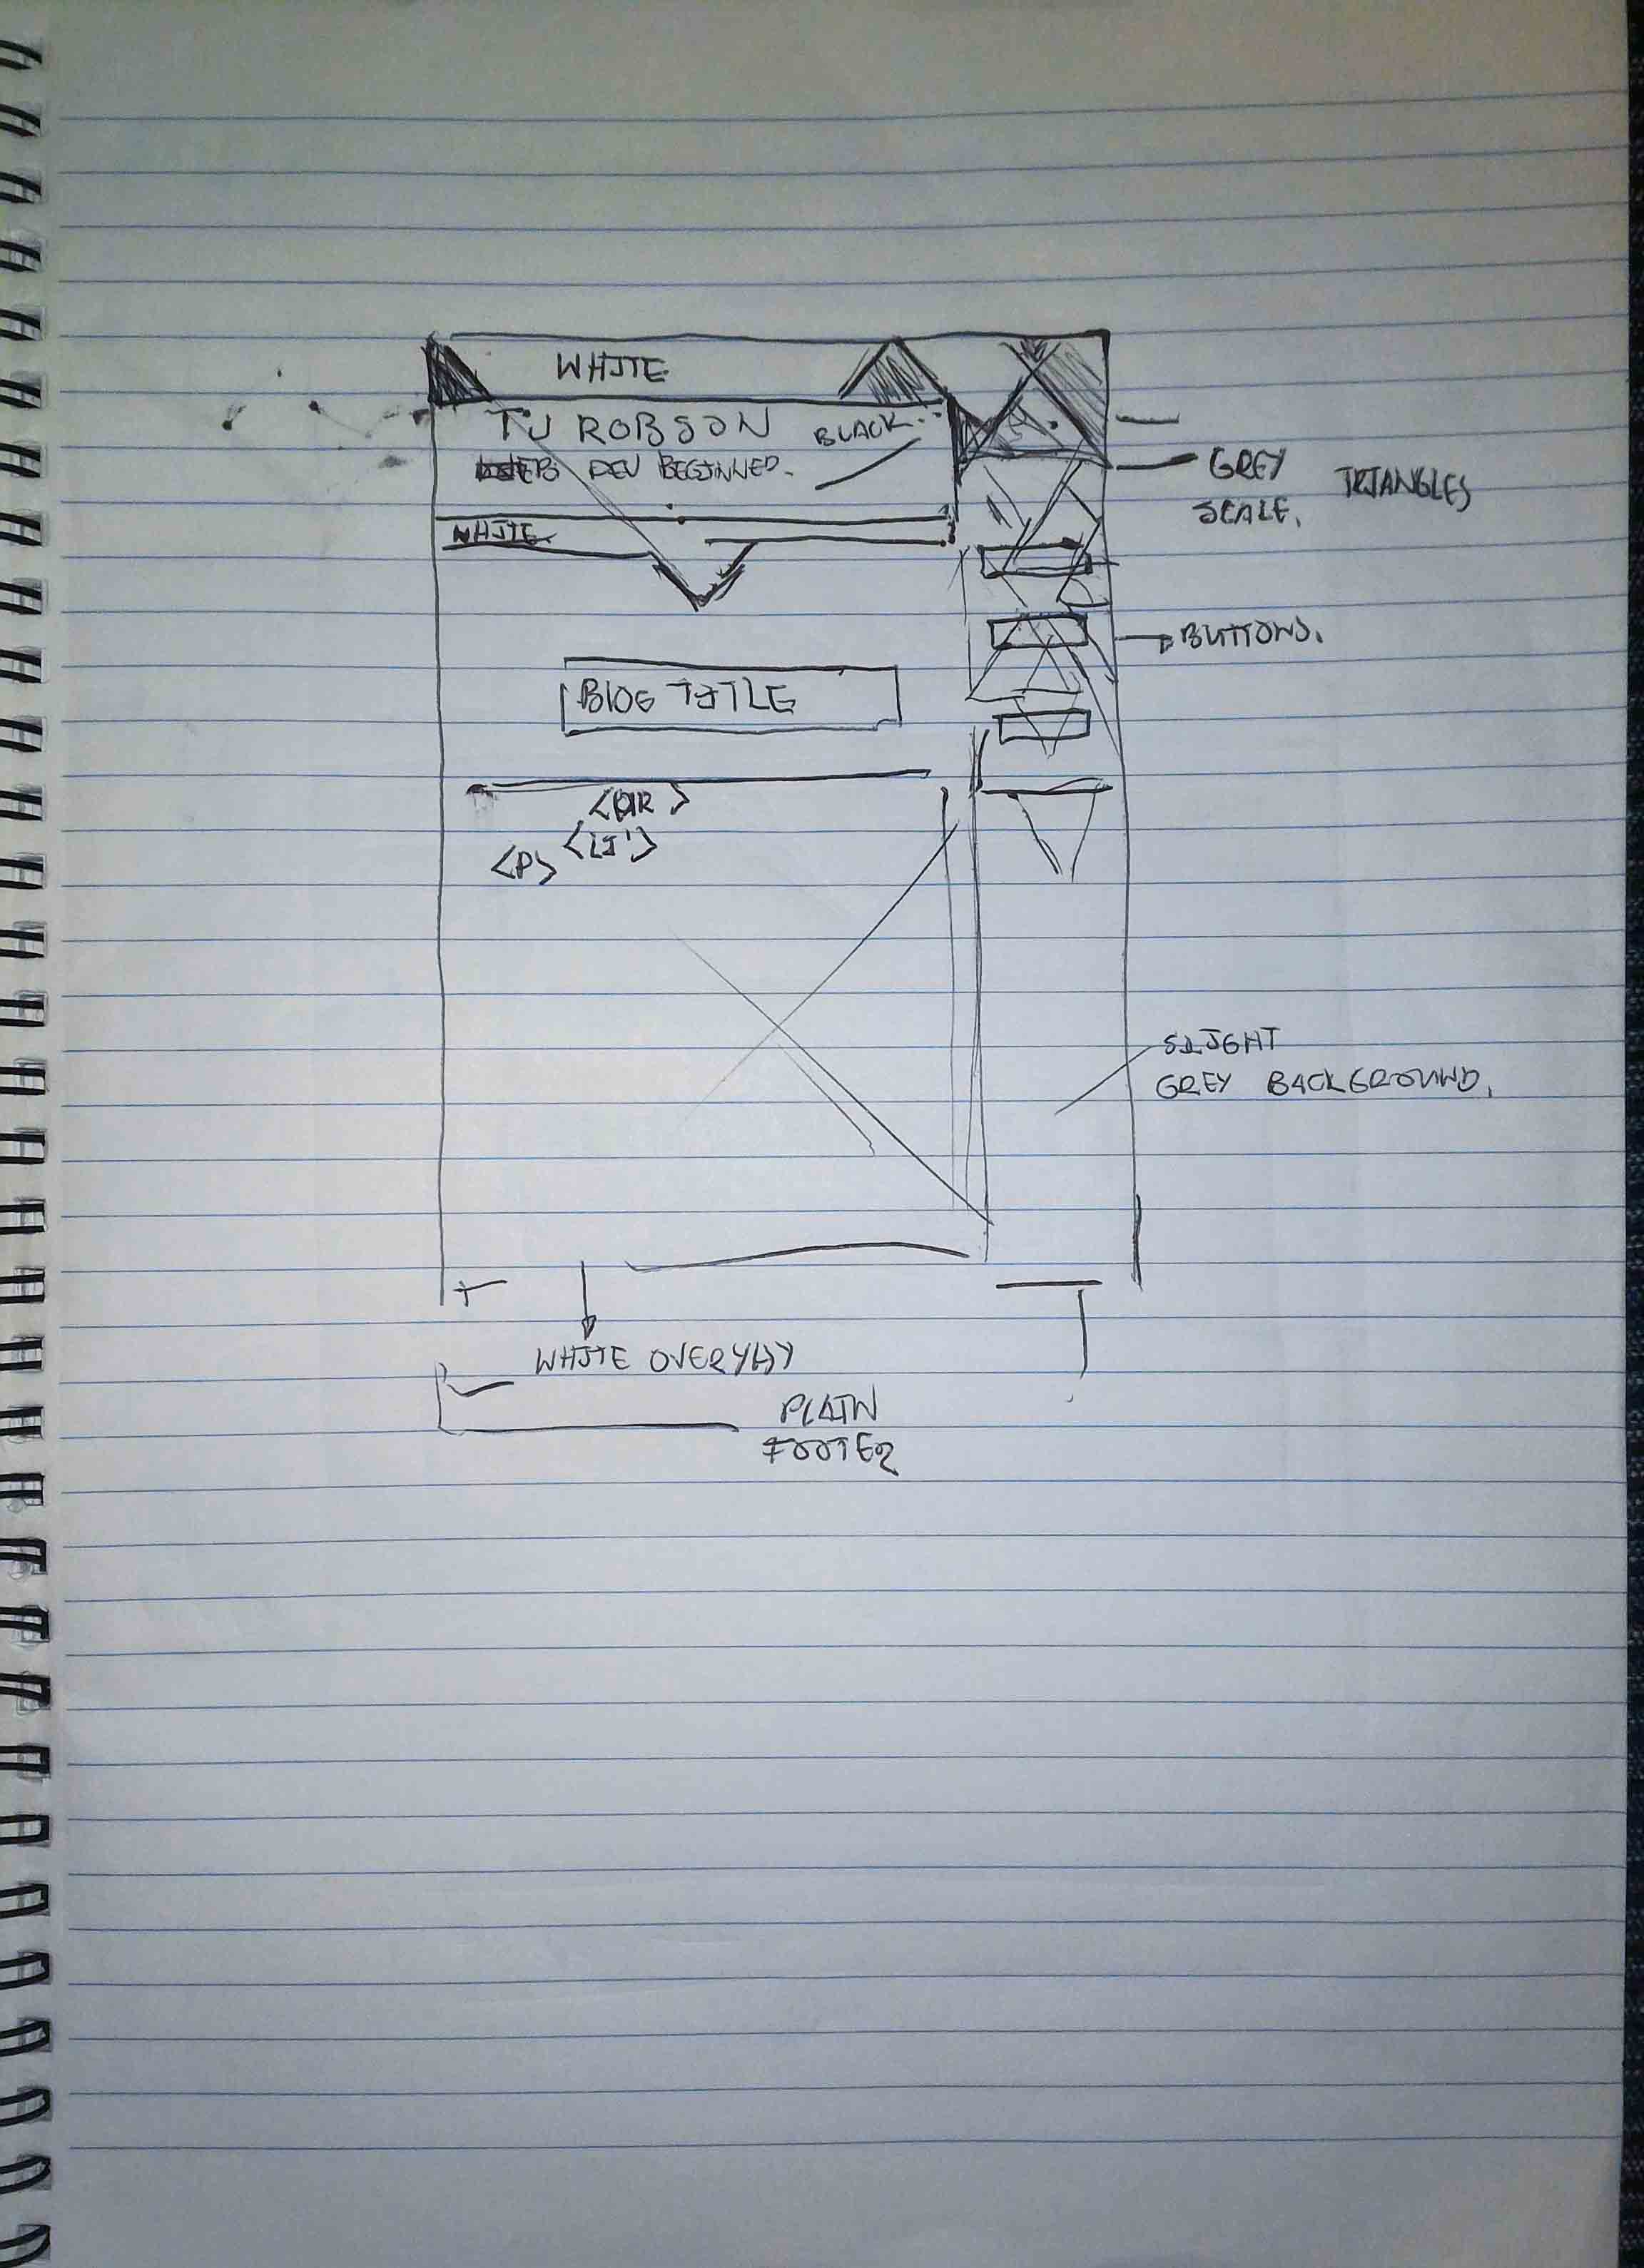 WHITE
TJ ROBSON
BLACK.
WEB DEV BEGINNED.
GREY
SCALE.
TRIANGLES
WHITE
BUTTONS.
BLOG TITLE
<P>
SLIGHT
GREY BACKGROUND.
WHITE OVERYLAY
PLAIN
FOOTER